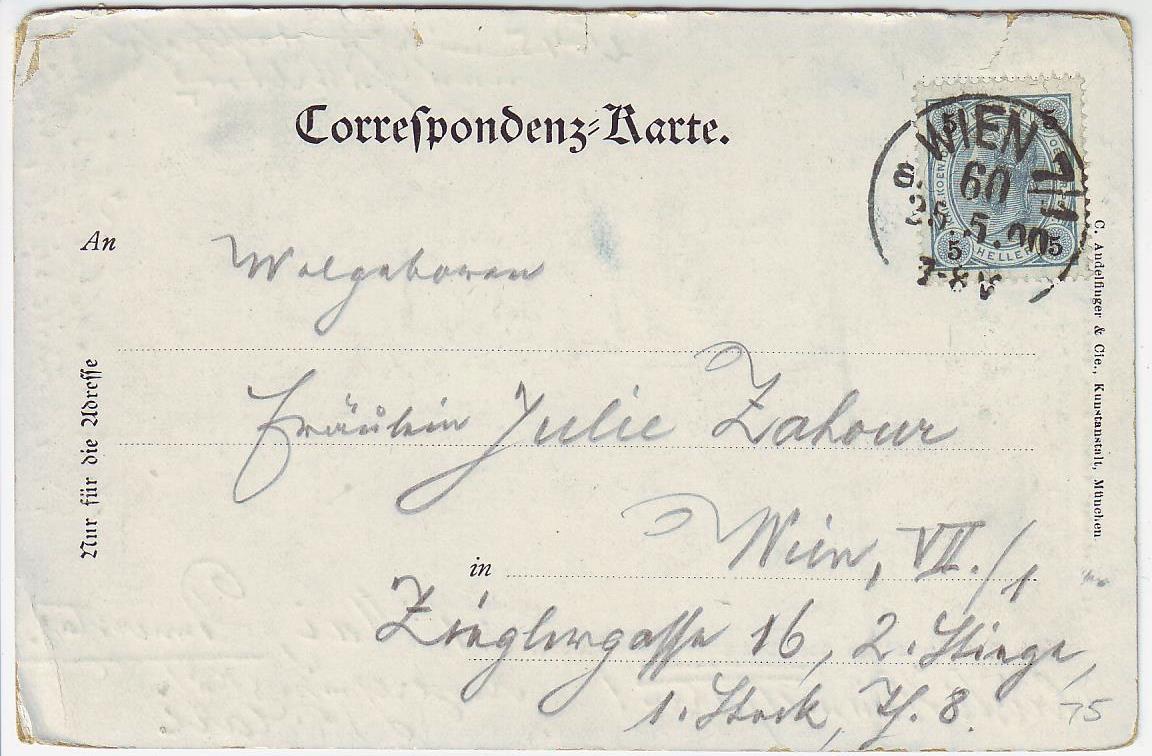 Correspondenz-Karte.
WIEN 7/1
60
8. 25. 5. 00
7-8 V
5 5
5 HELLER 5
An
Wolgeboren
Fräulein Julie Zahour
in Wien, VII./1
Zieglergasse 16, 2. Stiege,
1. Stock, T. 8.
75
Nur für die Adresse
C. Andelfinger & Cie., Kunstanstalt, München.